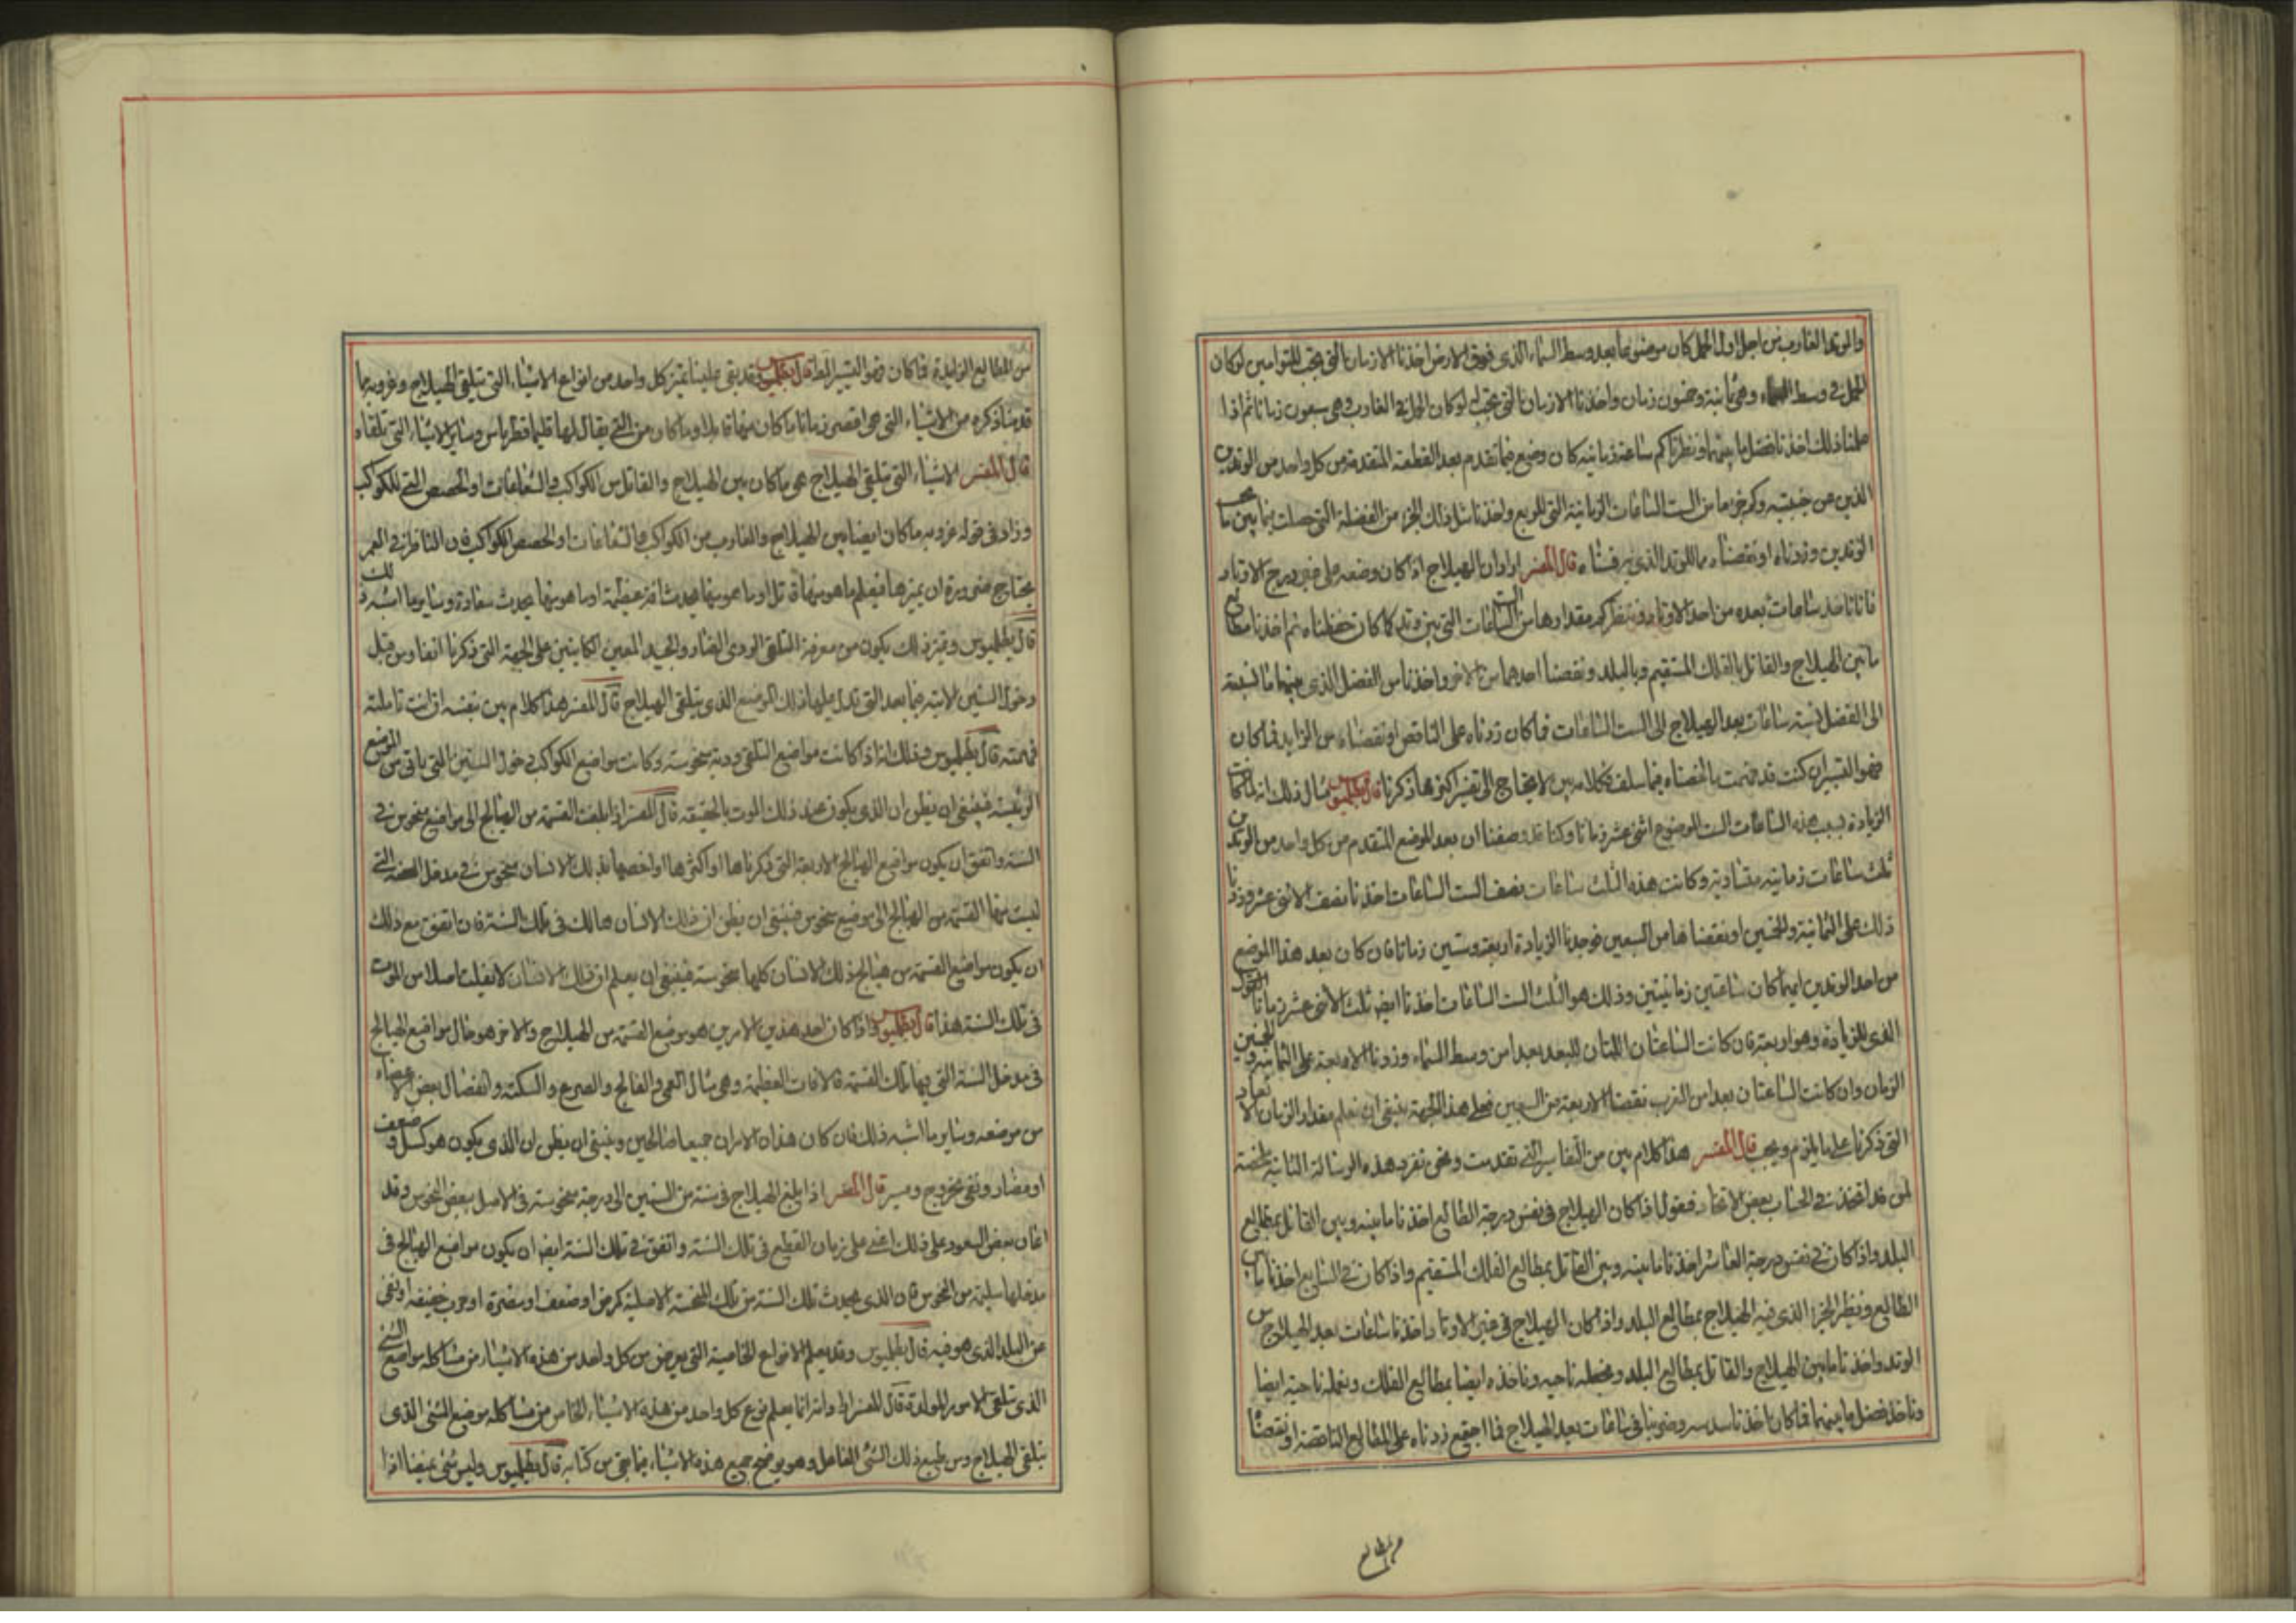 والوتد الغارب من اجل اول الحمل كان موضوعا بعد وسط السماء الذى فوق الارض اخذنا الازمان التى يجب للتوامين لو كان
الحمل فى وسط السماء وهى ثمانية وخمسون زمان واخذنا الازمان التى يجب لو كان الحمل فى الغارب وهى سبعون زمانا ثم اذا
علمنا ذلك اخذنا فضل ما بينهما ونظرنا كم ساعة زمانيه كان وضع فيما تقدم بعد القطعة المتقدمة من كل واحد من الوتدين
الذين عن جنبتيه وكم جزء ما من الست الساعات الزمانية التى للربع واخذنا مثل ذلك الجزء من الفضلة التى حصلت فيما بين ما يجب
الوتدين وزدناه او نقصناه مما للوتد الذى قال المفسر اراد ان الهيلاج اذا كان وضعه على غير درج الاوتاد
فانا ناخذ ساعات بعده من احد الاوتاد وننظر كم مقدارها من الست الساعات التى بين وتد فما كان حفظناه ثم اخذنا مطالع
ما بين الهيلاج والقاتل بالفلك المستقيم وبالبلد ونقصنا احدهما من الاخر واخذنا من الفضل الذى بينهما ما نسبته
الى الفضل كنسبة ساعات بعد الهيلاج الى الست الساعات فما كان زدناه على الناقص او نقصناه من الزايد فما كان
فهو التسيير ان كنت قد فهمت ما لخصناه فيما سلف فكلامه بين لا يحتاج الى تفسير اكثر مما ذكرنا قال بطلميوس مثال ذلك انه لما كانت
الزيادة بسبب هذه الساعات الست الموضوع اثنى عشر زمانا وكنا قد وصفنا ان بعد الموضع المتقدم من كل واحد من الوتدين
ثلث ساعات زمانيه متساوية وكانت هذه الثلث ساعات نصف الست الساعات اخذنا نصف الاثنى عشر وزدنا
ذلك على الثمانية والخمسين او نقصناها من السبعين فوجدنا الزيادة اربعة وستين زمانا فان كان بعد هذا الموضع
من احد الوتدين ايهما كان ساعتين زمانيتين وذلك هو الثلث الست الساعات اخذنا ايضا ثلث الاثنى عشر زمانا
الذى للزيادة وهو اربعة فان كانت الساعتان اللتان للبعد بعدا من وسط السماء وزدنا الاربعة على الثمانية والخمسين
الزمان وان كانت الساعتان بعدا من الغرب نقصنا الاربعة من السبعين فعلى هذه الجهة ينبغى ان نعلم مقدار الزمان
التى ذكرنا على ما يلزم ويجب قال المفسر هذا كلام بين من التفاسير التى تقدمت ونحن نفرد هذه الرسالة الثانية ملخصة
لمن قد اقتضى فى الحساب بعض فنقول اذا كان الهيلاج فى نفس درجة الطالع اخذنا ما بينه وبين القاتل بمطالع
البلد واذا كان فى نفس درجة العاشر اخذنا ما بينه وبين القاتل بمطالع الفلك المستقيم واذا كان فى السابع اخذنا ما بين
الطالع ونظير الجزء الذى فيه الهيلاج بمطالع البلد واذا كان الهيلاج فى غير الاوتاد اخذنا ساعات بعد الهيلاج من
الوتد واخذنا ما بين الهيلاج والقاتل بمطالع البلد ونجعله ناحيه وناخذه ايضا بمطالع الفلك ونجعله ناحية ايضا
وناخذ فضل ما بينهما فما كان اخذنا سدسه وضربناه فى ساعات بعد الهيلاج فما اجتمع زدناه على المطالع الناقصة او نقصناه
من المطالع
من المطالع الزايدة فما كان فهو التسيير المطلوب قال بطلميوس وقد بقى علينا تمييز كل واحد من انواع الاشياء التى تلقى الهيلاج وغروبه بما
قدمنا ذكره من الاشياء التى هى اقصر زمانا ما كان منها قاتلا وما كان من التى يقال لها قليماقطرياس وسائر الاشياء التى تلقاه
قال المفسر الاشياء التى تلقى الهيلاج هى ما كان بين الهيلاج والقاتل من الكواكب والشعاعات او الحصص التى للكواكب
وزاد فى قوله غروبه ما كان ايضا بين الهيلاج والغارب من الكواكب والشعاعات او الحصص الكواكب فان الناظر فى العمر
يحتاج ضرورة ان يميزها فيعلم ما هو منها قتل او ما هو منها يحدث افة عظيمة او ما هو منها يحدث سعادة وسائر ما اشبه ذلك
قال بطلميوس وتمييز ذلك يكون من معرفة المتلقى الردى الضار والجيد المعين الكاينين على الجهة التى ذكرنا انفا ومن قبل
دخول السنين الاتيه فيما بعد التى تدل عليها ذلك الموضع الذى يتلقى الهيلاج قال المفسر هذا كلام بين بنفسه ان انت تاملته
فهمته قال بطلميوس وذلك انه اذا كانت مواضع التلقى ودية منحوسة وكانت مواضع الكواكب فى دخول السنين التى ياتى من الموضع
الرئيسة فينبغى ان يظن ان الذى يكون عند ذلك الموت بالحقيقه قال المفسر اذا بلغت القسمة من الهيالج الى مواضع منحوس فى
السنة واتفق ان يكون مواضع الهيالج الاربعة التى ذكرناها او اكثرها او اخصها بذلك الانسان منحوس فى مدخل السنة التى
بلغت بها القسمة من الهيالج الى موضع منحوس فينبغى ان يظن ان ذلك الانسان هالك فى تلك السنة فان اتفق مع ذلك
ان يكون مواضع القسمة من هيالج ذلك الانسان كلها منحوسة فينبغى ان يعلم ان ذلك الانسان لا يفلت اصلا من الموت
فى تلك السنة هذا قال بطلميوس واذا كان احد هذين الامرين هو موضع القسمة من الهيلاج والاخر هو حال مواضع الهيالج
فى مدخل السنة التى بها تلك القسمة فالافات العظيمة وهى مثال العمى والفالج والصرع والسكتة وانفصال بعض الاعضاء
من موضعه وسائر ما اشبه ذلك فان كان هذان الامران جميعا صالحين وينبغى ان يظن ان الذى يكون هو كسل وضعف
او مضار ونفى بخروج ومسير قال المفسر اذا بلغ الهيلاج فى سنة من السنين الى درجة منحوسة فى الاصل ببعض النحوس وقد
اعان بعض السعود على ذلك اعنى على زمان القطع فى تلك السنة واتفق فى تلك السنة ايضا ان يكون مواضع الهيالج فى
مدخلها سليمة من النحوس فان الذى يحدث تلك السنة من تلك المنحسة الاصلية كمرض او ضعف او مضرة او حرب خفيفه او نفى
من البلد الذى هو فيه قال بطلميوس وقد يعلم الانواع الخاصية التى يعرض من كل واحد من هذه الاشياء من مشاكلة مواضع الشئ
الذى يتلقى الامور المولدة قال المفسر اراد انه انما يعلم نوع كل واحد من هذه الاشياء الخاص من مشاكله موضع الشئ الذى
يتلقى الهيلاج ومن طبع ذلك الشئ الفاعل وهو يوضح جميع هذه الاشياء فيما بقى من كتابه قال بطلميوس وليس شئ يمنعنا اذا